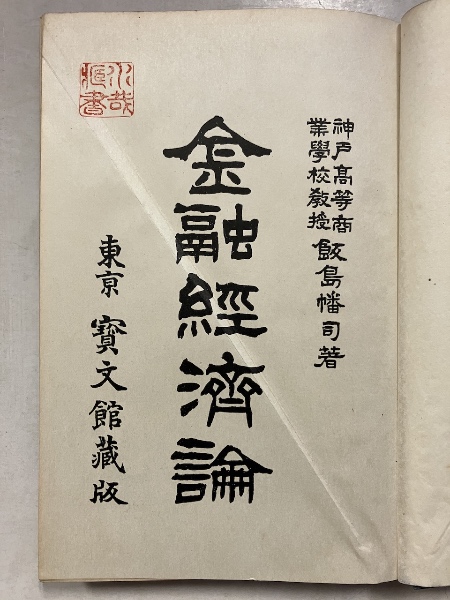 神戶高等商
業學校教授
飯島幡司著
金融經濟論
東京 寶文館藏版